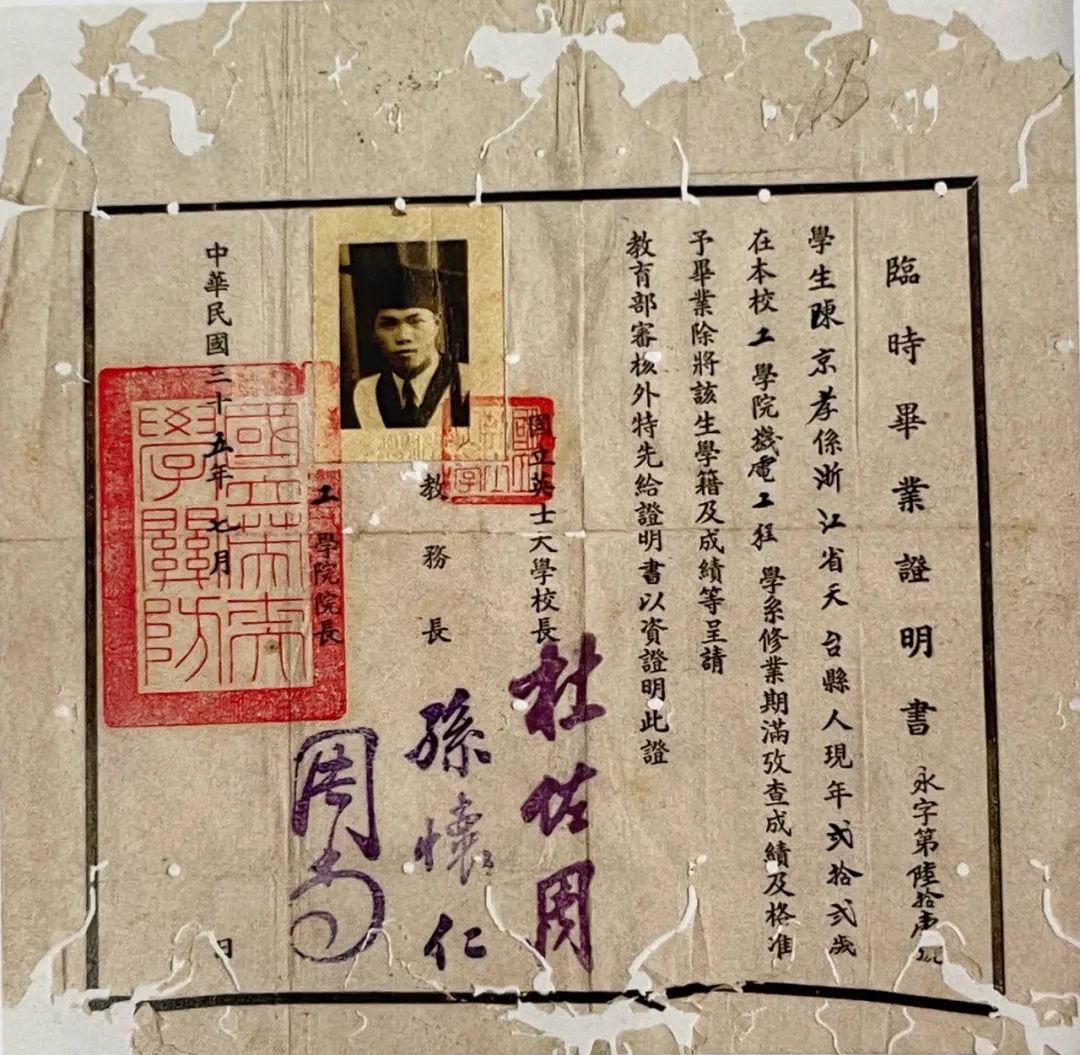 臨時畢業證明書 永字第陸拾壹號
學生陳京孝係浙江省天台縣人現年弍拾弍歲
在本校工學院機電工程學系修業期滿攷查成績及格准
予畢業除將該生學籍及成績等呈請
教育部審核外特先給證明書以資證明此證
國立英士大學校長 杜佐周
教務長 孫懷仁
工學院院長 周尚
中華民國三十五年七月 日
國立英士大學關防